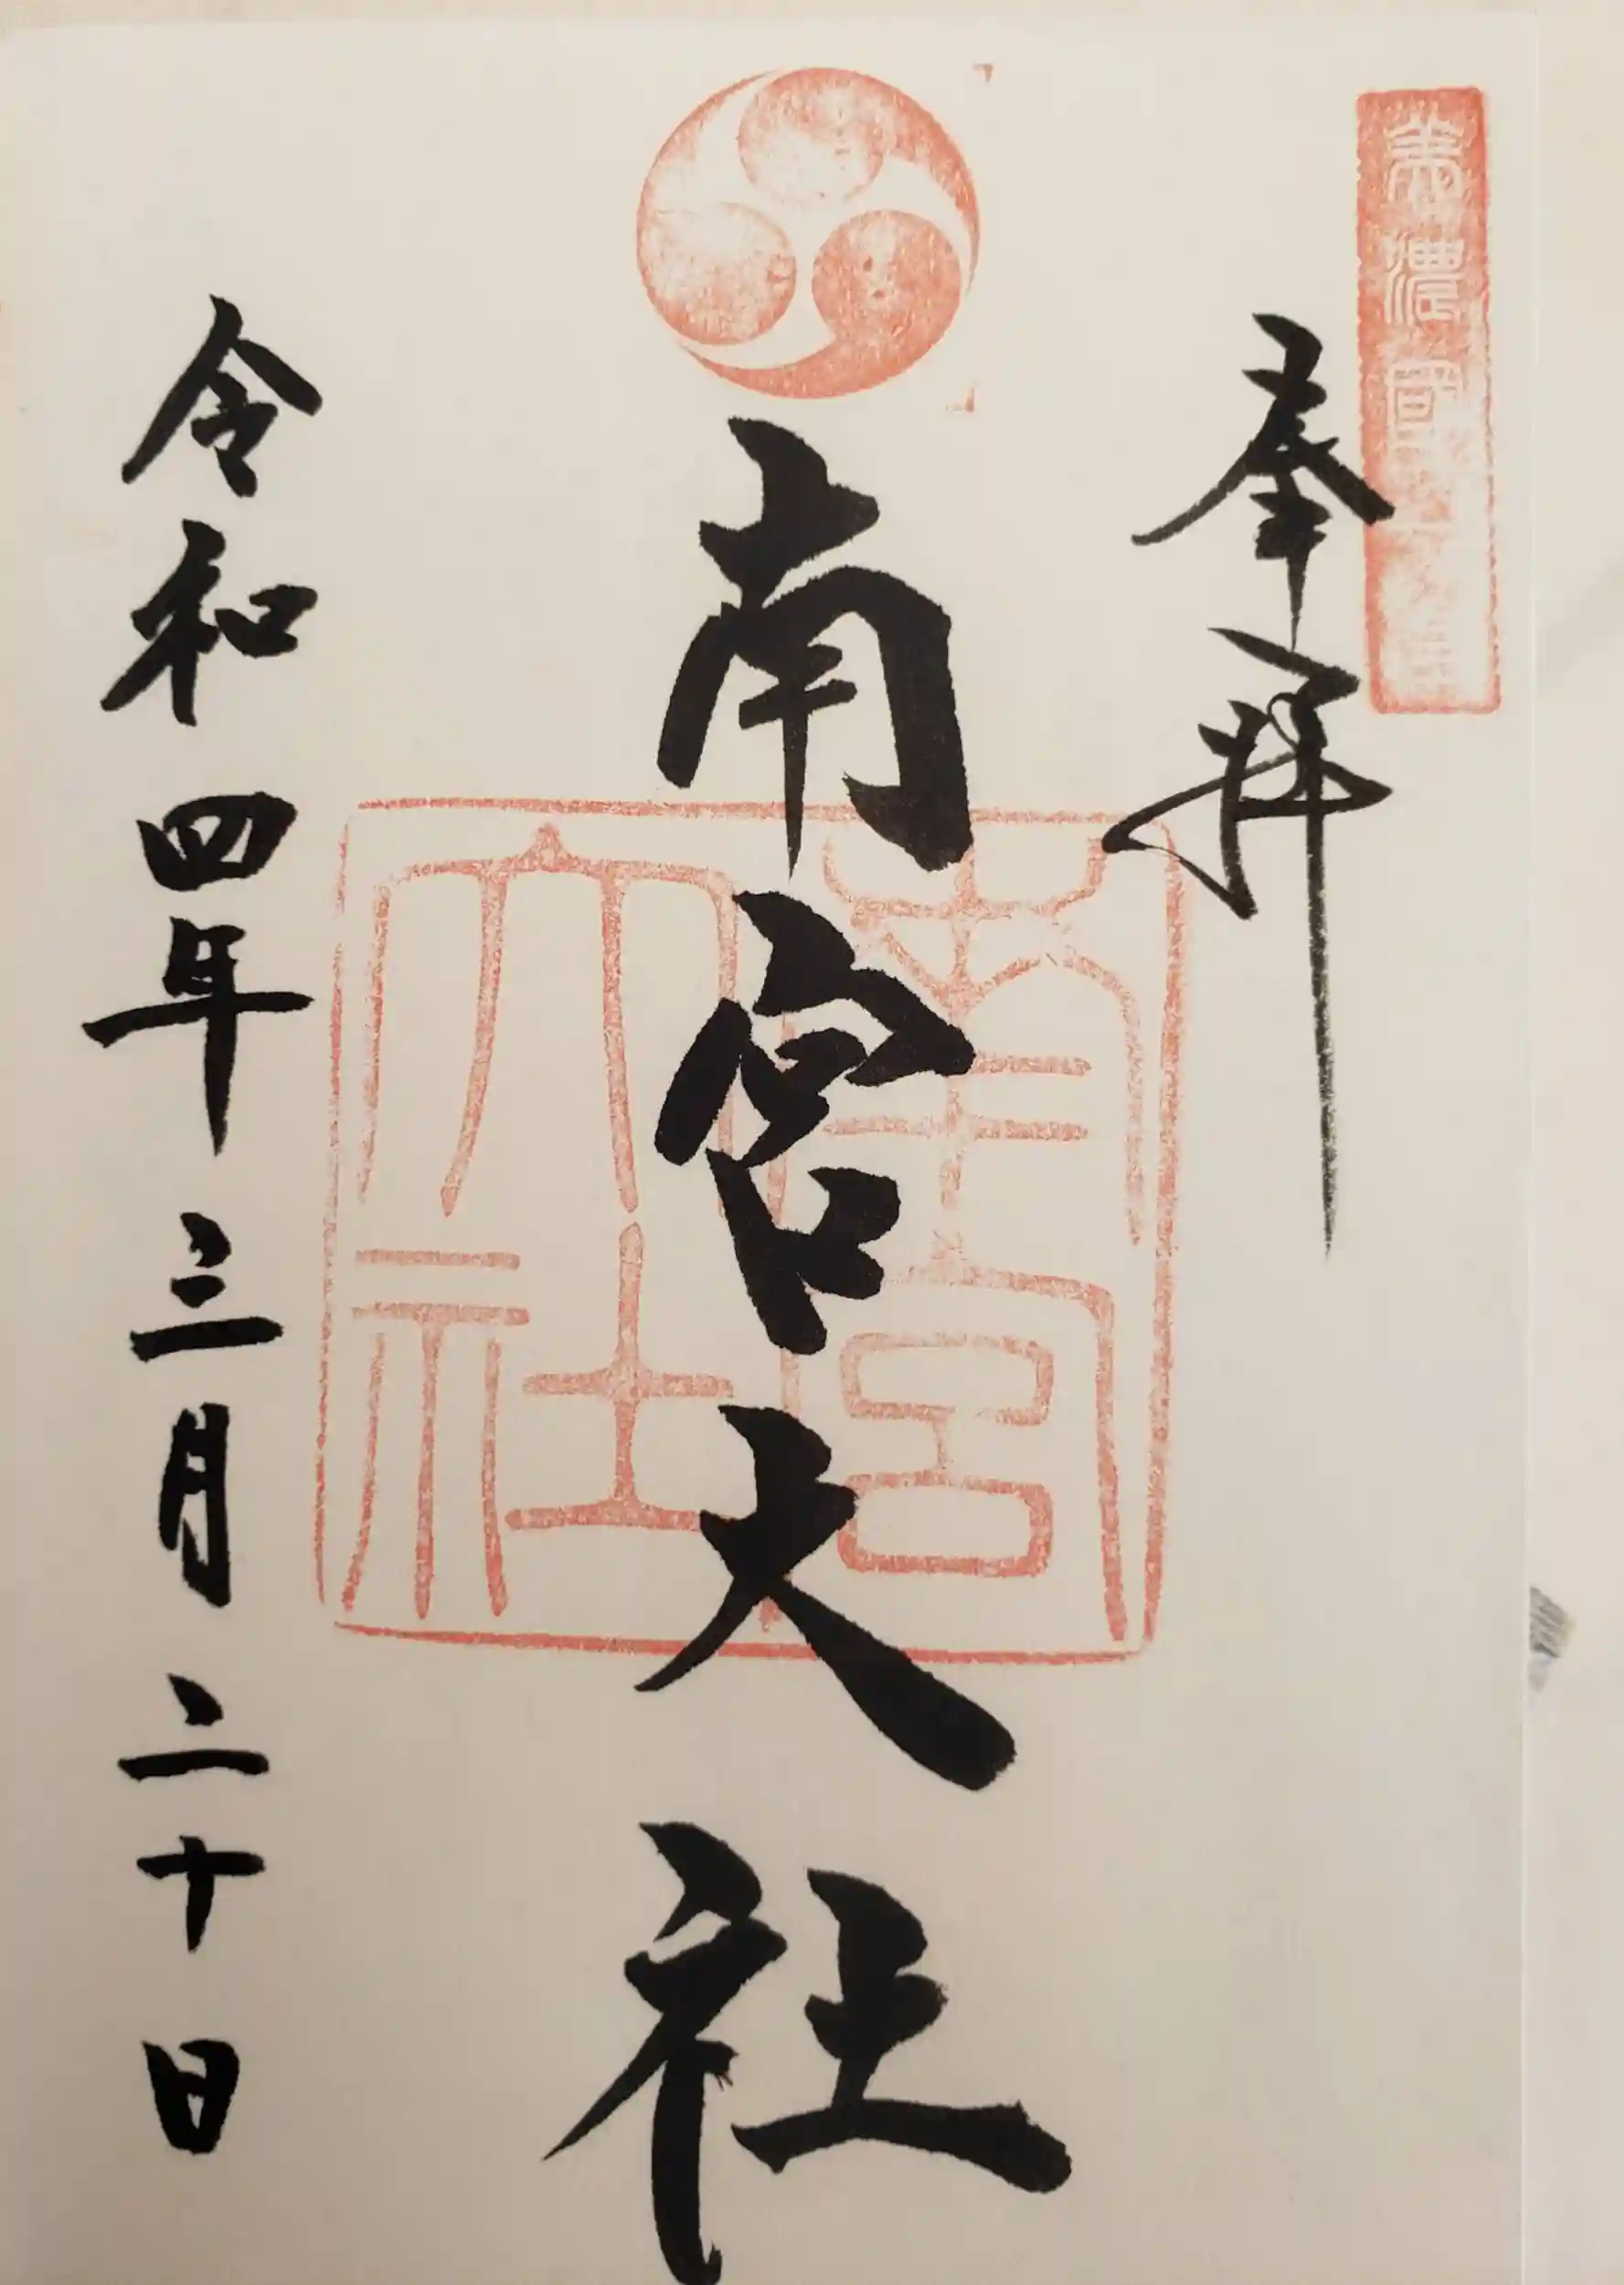 美濃國一宮
奉拝
南宮大社
南宮
大社
令和四年三月二十日